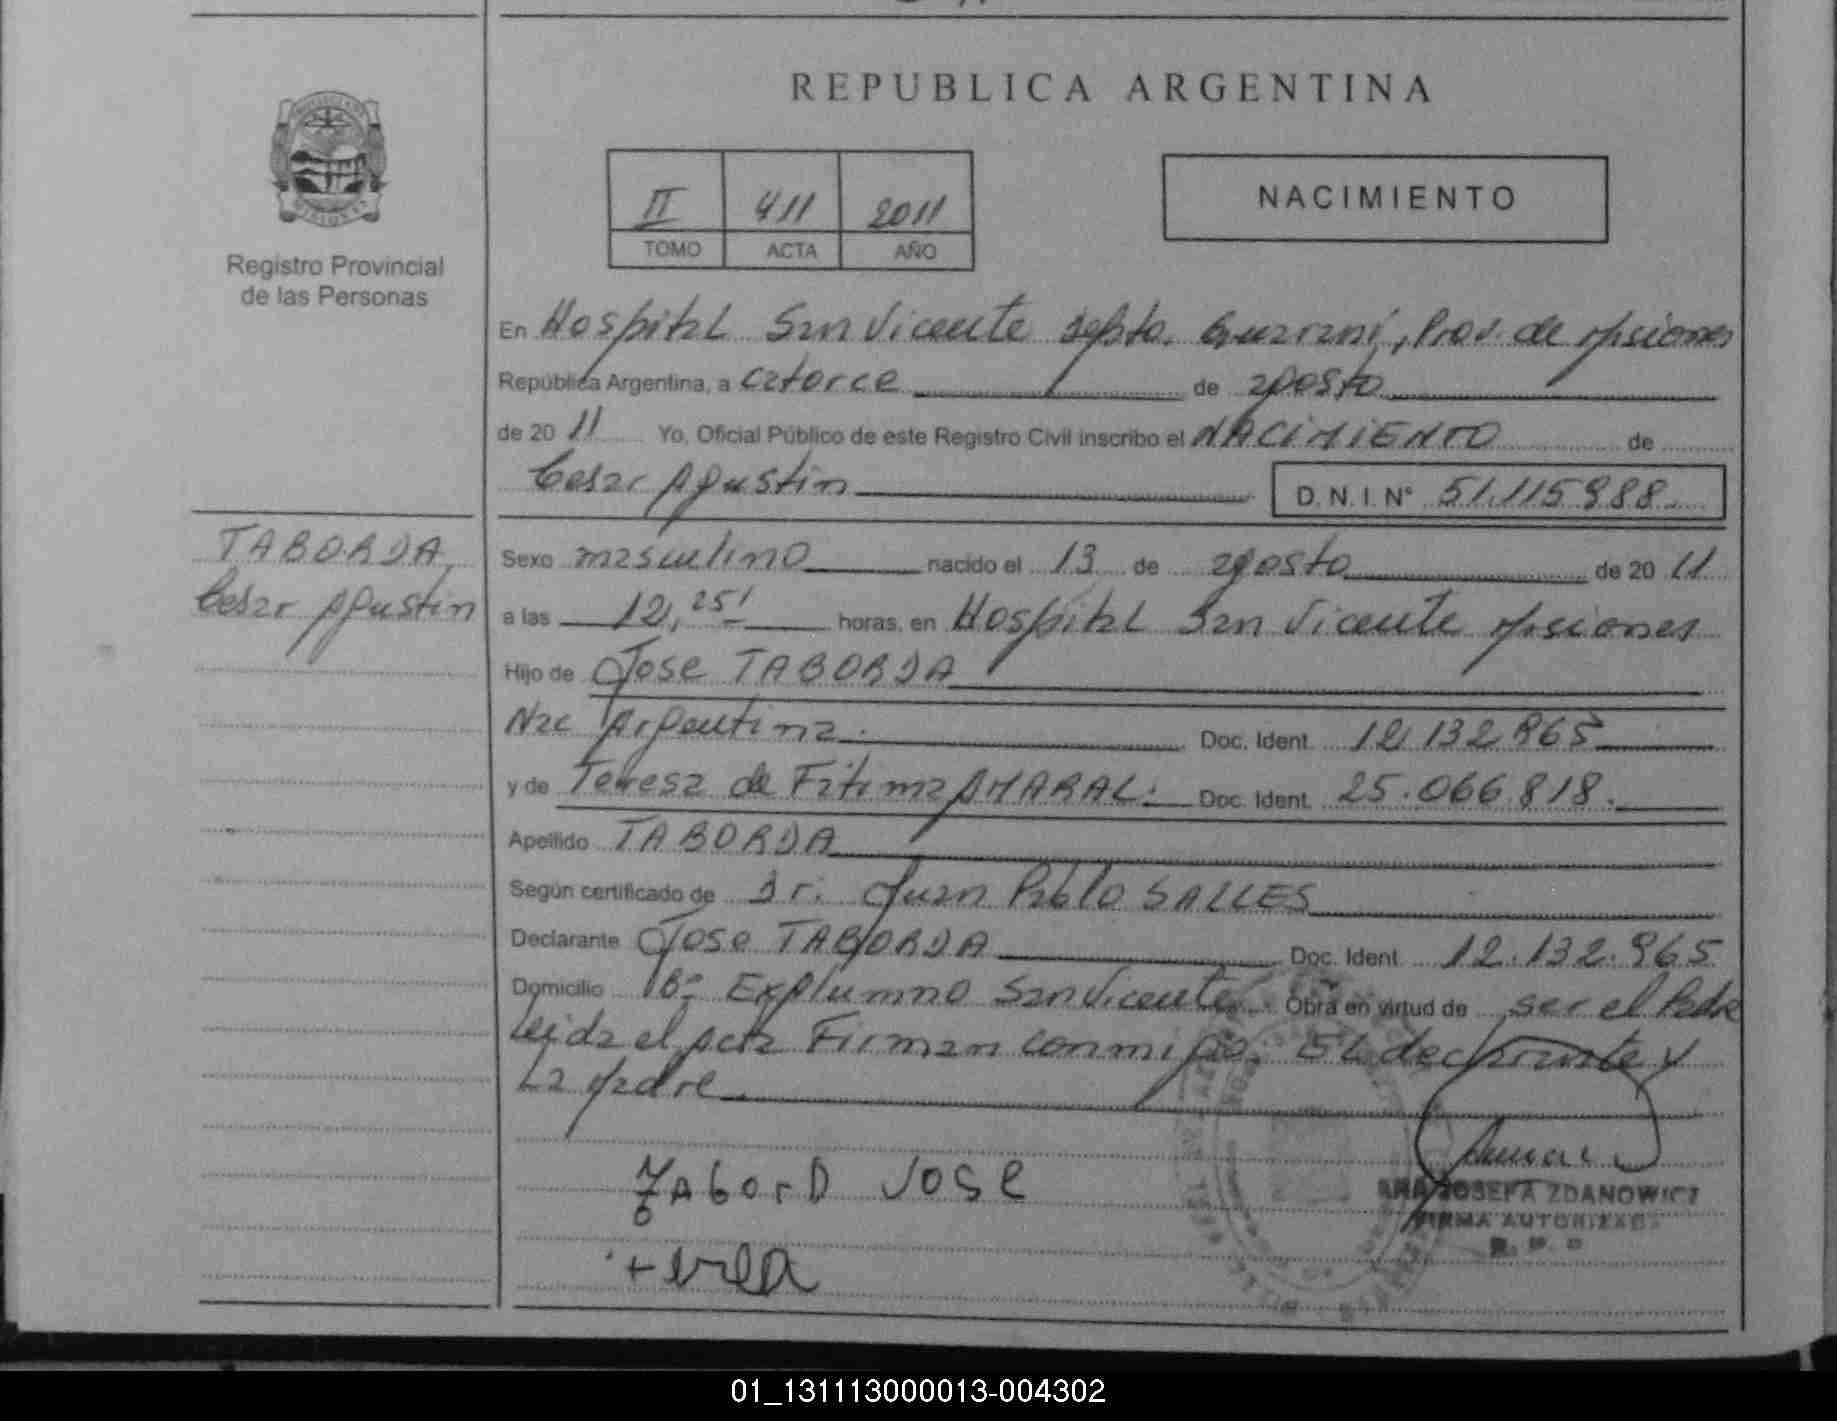 REPUBLICA ARGENTINA
II 411 2011
TOMO ACTA AÑO
NACIMIENTO
Registro Provincial
de las Personas
En Hospital San Vicente Depto. Guaraní, Prov. de Misiones
República Argentina, a catorce de agosto
de 2011 Yo, Oficial Público de este Registro Civil inscribo el NACIMIENTO de
Cesar Agustin D.N.I. N° 51.115.988
TABORDA,
Cesar Agustin
Sexo masculino nacido el 13 de agosto de 2011
a las 12,25' horas, en Hospital San Vicente Misiones
Hijo de Jose TABORDA
Nac Argentina. Doc. Ident. 12.132.965
y de Teresa de Fatima AMARAL. Doc. Ident. 25.066.818.
Apellido TABORDA
Según certificado de Dr. Juan Pablo SALLES
Declarante Jose TABORDA Doc. Ident. 12.132.965
Domicilio B° Explumno San Vicente. Obra en virtud de ser el Padre
Leida el Acta Firman conmigo, El declarante y
La Madre
TAborD JOSE
ANA JOSEFA ZDANOWICZ
FIRMA AUTORIZADA
R. P. P
01_131113000013-004302